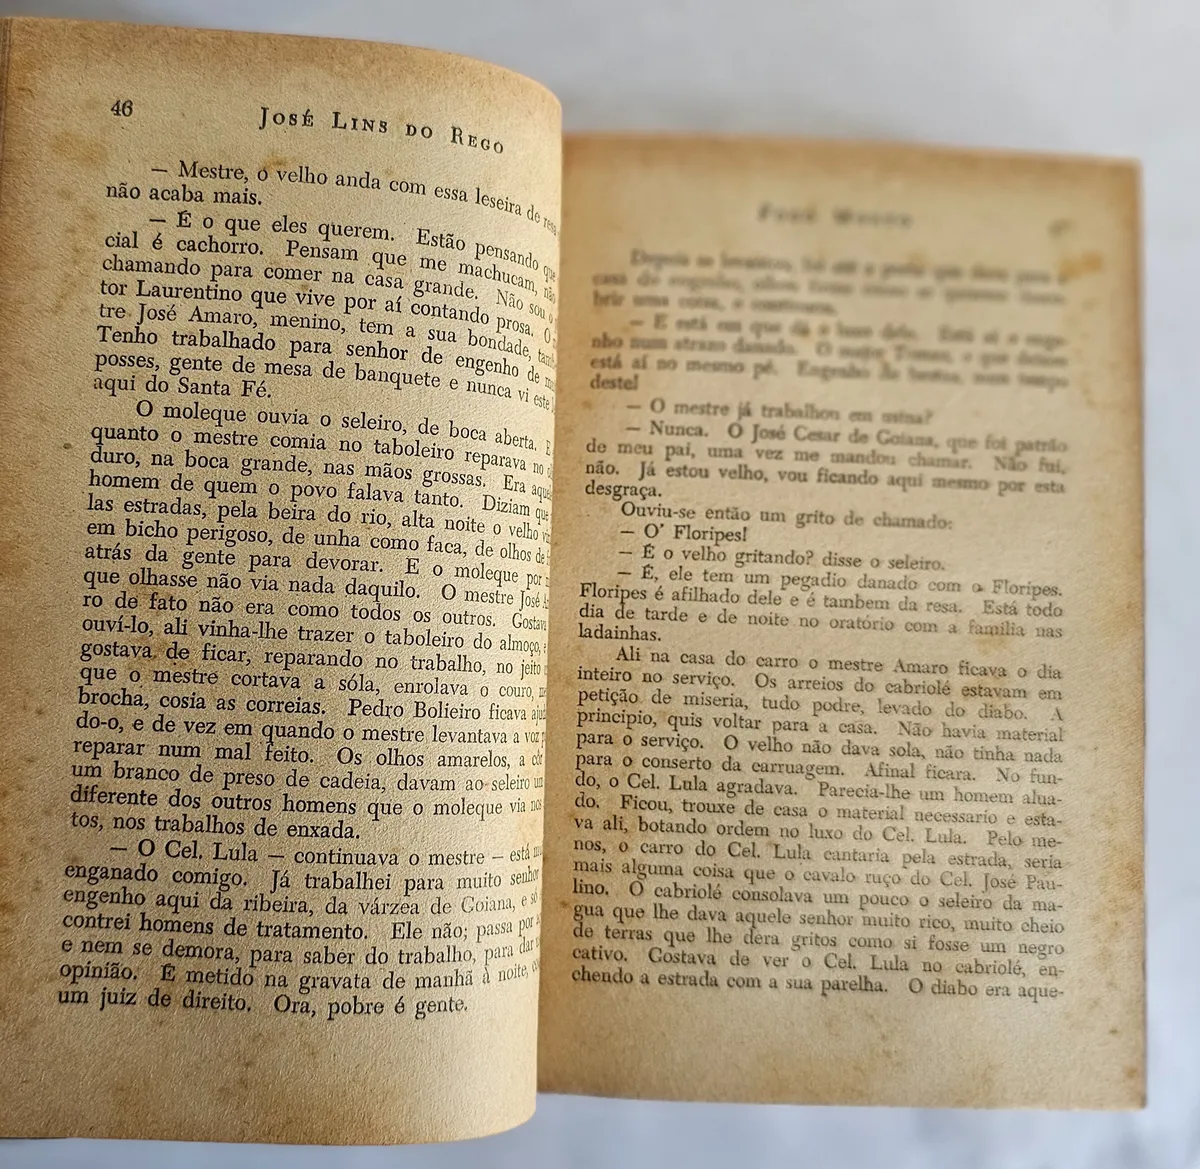 46
JOSÉ LINS DO REGO
— Mestre, o velho anda com essa leseira de
não acaba mais.
— É o que eles querem. Estão pensando que
cial é cachorro. Pensam que me machucam, não
chamando para comer na casa grande. Não sou o
tor Laurentino que vive por aí contando prosa. O
tre José Amaro, menino, tem a sua bondade,
Tenho trabalhado para senhor de engenho de
posses, gente de mesa de banquete e nunca vi este
aqui do Santa Fé.
O moleque ouvia o seleiro, de boca aberta. E
quanto o mestre comia no taboleiro reparava no
duro, na boca grande, nas mãos grossas. Era
homem de quem o povo falava tanto. Diziam que
las estradas, pela beira do rio, alta noite o velho
em bicho perigoso, de unha como faca, de olhos de
atrás da gente para devorar. E o moleque por
que olhasse não via nada daquilo. O mestre José
ro de fato não era como todos os outros. Gostava
ouví-lo, ali vinha-lhe trazer o taboleiro do almoço, e
gostava de ficar, reparando no trabalho, no jeito
que o mestre cortava a sóla, enrolava o couro,
brocha, cosia as correias. Pedro Bolieiro ficava
do-o, e de vez em quando o mestre levantava a voz
reparar num mal feito. Os olhos amarelos, a côr
um branco de preso de cadeia, davam ao seleiro um
diferente dos outros homens que o moleque via nos
tos, nos trabalhos de enxada.
— O Cel. Lula — continuava o mestre — está
enganado comigo. Já trabalhei para muito senhor
engenho aqui da ribeira, da várzea de Goiana, e só
contrei homens de tratamento. Ele não; passa por
e nem se demora, para saber do trabalho, para dar
opinião. É metido na gravata de manhã à noite,
um juiz de direito. Ora, pobre é gente.
Depois se levantou, foi até a porta que dava para a
casa do engenho, olhou
brir uma coisa, e continuou.
— E está em que dá o luxo dele. Está aí o enge-
nho num atrazo danado. O
está aí no mesmo pé. Engenho de bestas, num tempo
deste!
— O mestre já trabalhou em usina?
— Nunca. O José Cesar de Goiana, que foi patrão
de meu pai, uma vez me mandou chamar. Não fui,
não. Já estou velho, vou ficando aqui mesmo por esta
desgraça.
Ouviu-se então um grito de chamado:
— O' Floripes!
— É o velho gritando? disse o seleiro.
— É, ele tem um pegadio danado com o Floripes.
Floripes é afilhado dele e é tambem da resa. Está todo
dia de tarde e de noite no oratório com a familia nas
ladainhas.
Ali na casa do carro o mestre Amaro ficava o dia
inteiro no serviço. Os arreios do cabriolé estavam em
petição de miseria, tudo podre, levado do diabo. A
principio, quis voltar para a casa. Não havia material
para o serviço. O velho não dava sola, não tinha nada
para o conserto da carruagem. Afinal ficara. No fun-
do, o Cel. Lula agradava. Parecia-lhe um homem alua-
do. Ficou, trouxe de casa o material necessario e esta-
va ali, botando ordem no luxo do Cel. Lula. Pelo me-
nos, o carro do Cel. Lula cantaria pela estrada, seria
mais alguma coisa que o cavalo ruço do Cel. José Pau-
lino. O cabriolé consolava um pouco o seleiro da ma-
gua que lhe dava aquele senhor muito rico, muito cheio
de terras que lhe dera gritos como si fosse um negro
cativo. Gostava de ver o Cel. Lula no cabriolé, en-
chendo a estrada com a sua parelha. O diabo era aque-